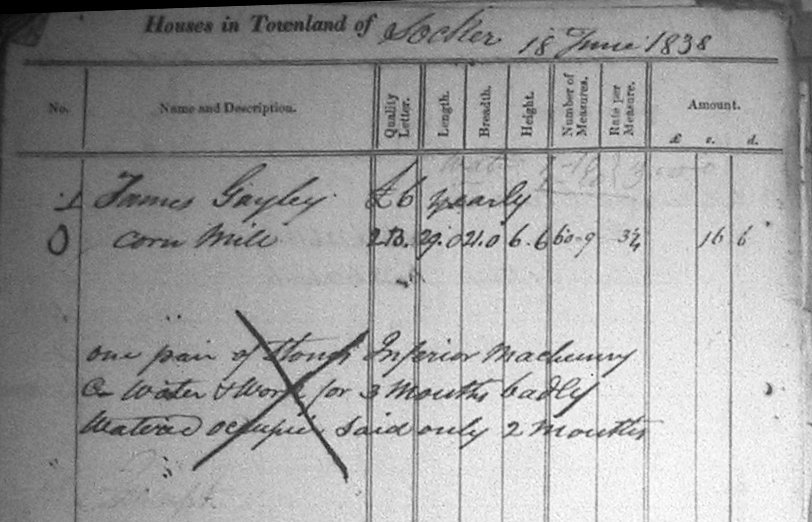 Houses in Townland of Socker 18 June 1838
No. Name and Description. Quality Letter. Length. Breadth. Height. Number of Measures. Rate per Measure. Amount. £ s. d.
1 James Gayley £6 yearly
0 Corn Mill 2B. 29.0 21.0 6.6 60-9 3¼ 16 6
one pair of Stones Inferior Machinery
Water & Work for 3 Months badly
Watered occupier Said only 2 Months